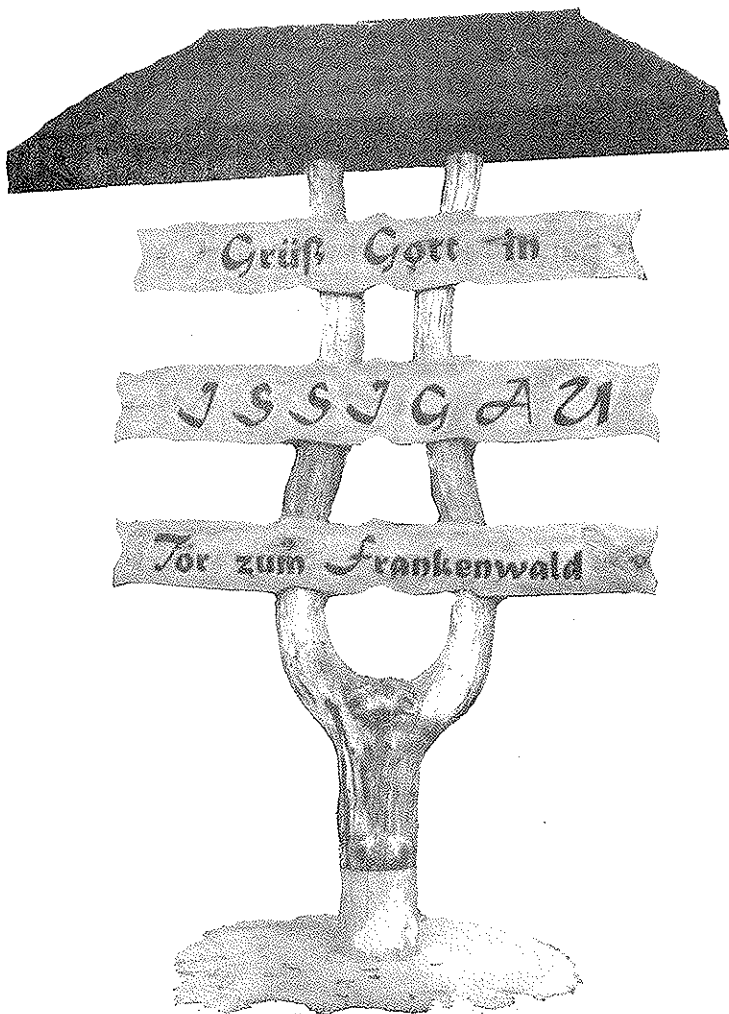 Grüß Gott in
ISSIGAU
Tor zum Frankenwald